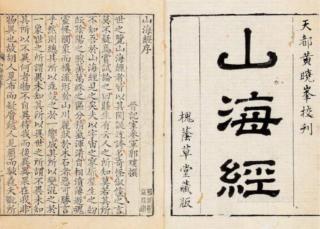 天都黃曉峯校刊
山海經
槐蔭草堂藏版
山海經序
晉記室參軍郭璞撰
世之覽山海經者皆以其閎誕迂誇多奇怪俶儻之言
莫不疑焉嘗試論之曰莊生有云人之所知莫若其所
不知吾於山海經見之矣夫以宇宙之寥廓羣生之紛
紜陰陽之煦蒸萬殊之區分精氣渾淆自相濆薄遊魂
靈怪觸象而構流形於山川麗狀於木石者惡可勝言
乎然則總其所以乖鼓之於一響成其所以變混之於
一象世之所謂異未知其所以異世之所謂不異未知
其所以不異何者物不自異待我而後異異果在我非
物異也故胡人見布而疑黂越人見罽而駭毳夫翫所